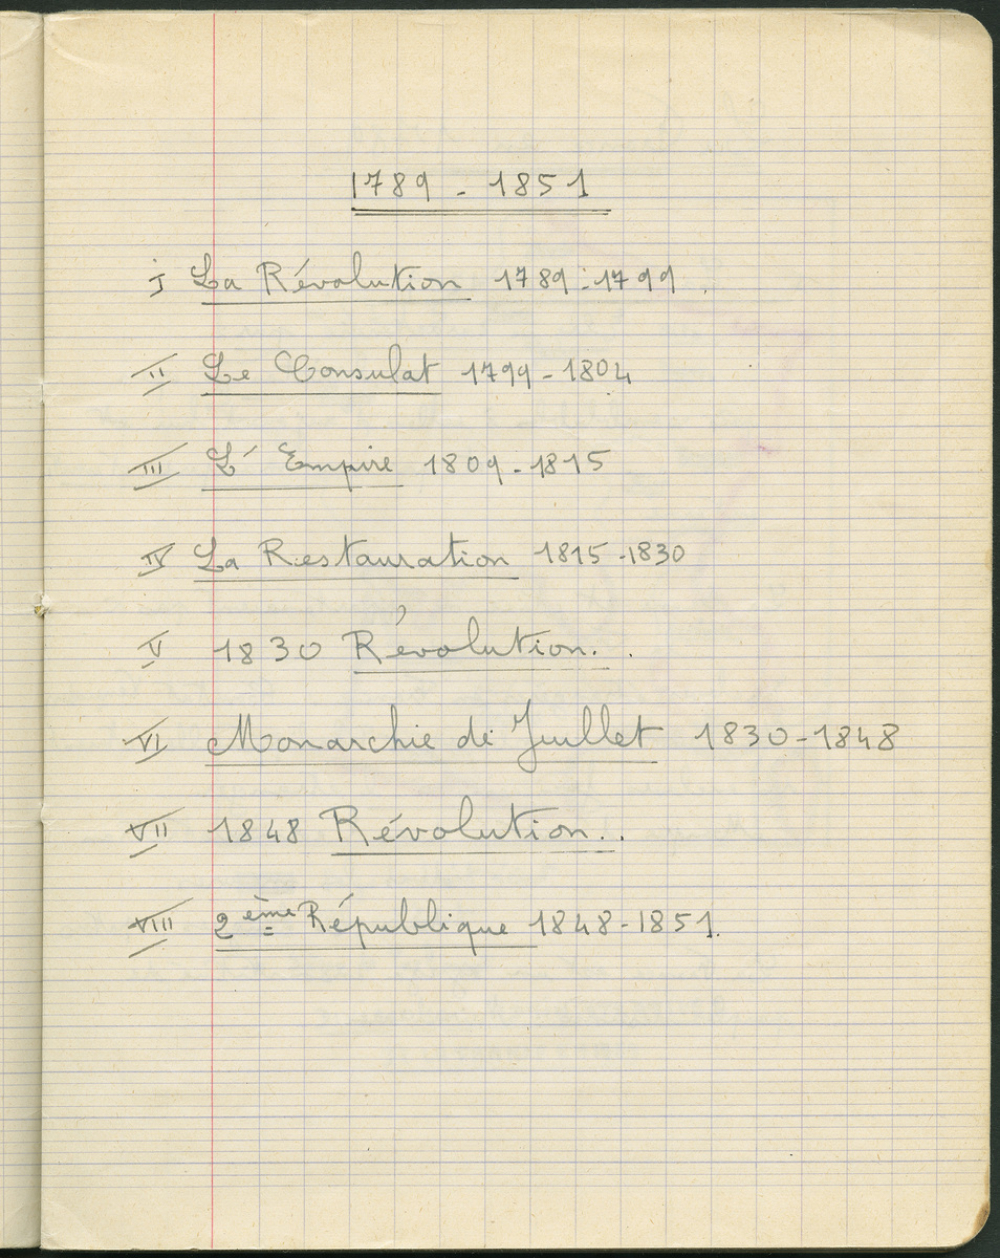 1789 - 1851
I La Révolution 1789-1799.
II Le Consulat 1799-1804
III L'Empire 1809-1815
IV La Restauration 1815-1830
V 1830 Révolution..
VI Monarchie de Juillet 1830-1848
VII 1848 Révolution..
VIII 2ème République 1848-1851.